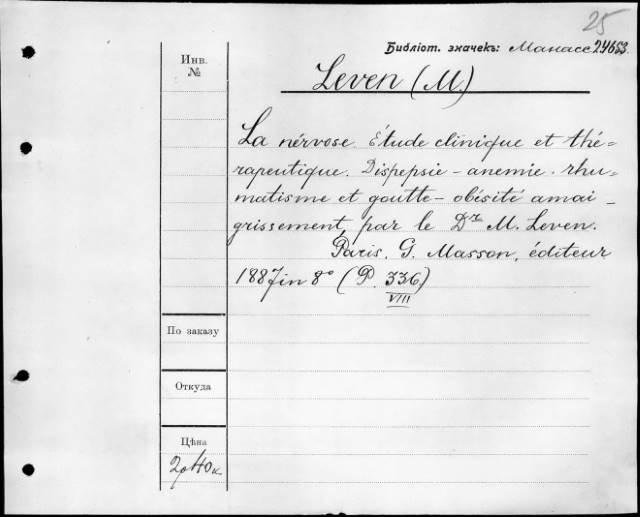 25
Библіот. значекъ: Манасс 24653
Инв.
№
Leven (M.)
La nérvose. Étude clinique et thé-
rapeutique. Dispepsie - anemie - rhu-
matisme et goutte - obésité amai-
grissement, par le Dr M. Leven.
Paris, G. Masson, éditeur
1887 in 8° (P. 336)
VIII
По заказу
Откуда
Цѣна
2р 40к